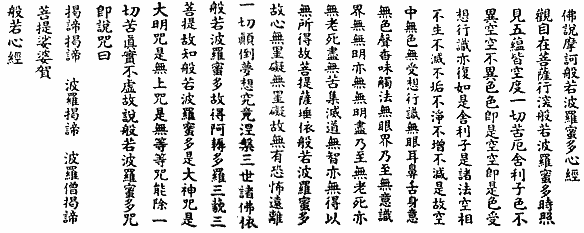 佛說摩訶般若波羅蜜多心經
觀自在菩薩行深般若波羅蜜多時照
見五蘊皆空度一切苦厄舍利子色不
異空空不異色色即是空空即是色受
想行識亦復如是舍利子是諸法空相
不生不滅不垢不淨不增不減是故空
中無色無受想行識無眼耳鼻舌身意
無色聲香味觸法無眼界乃至無意識
界無無明亦無無明盡乃至無老死亦
無老死盡無苦集滅道無智亦無得以
無所得故菩提薩埵依般若波羅蜜多
故心無罣礙無罣礙故無有恐怖遠離
一切顛倒夢想究竟涅槃三世諸佛依
般若波羅蜜多故得阿耨多羅三藐三
菩提故知般若波羅蜜多是大神咒是
大明咒是無上咒是無等等咒能除一
切苦真實不虛故說般若波羅蜜多咒
即說咒曰
揭諦揭諦 波羅揭諦 波羅僧揭諦
菩提娑婆賀
般若心經